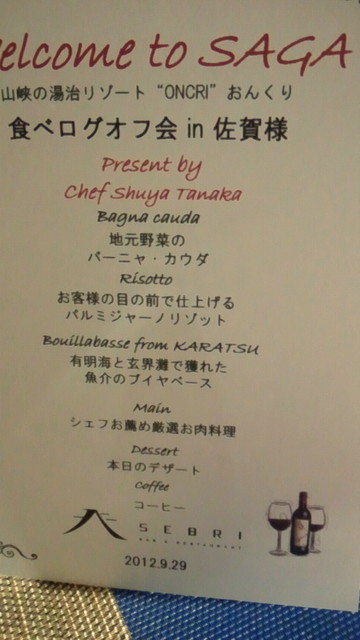 Welcome to SAGA
山峡の湯治リゾート“ONCRI”おんくり
食べログオフ会 in 佐賀様
Present by
Chef Shuya Tanaka
Bagna cauda
地元野菜の
バーニャ・カウダ
Risotto
お客様の目の前で仕上げる
パルミジャーノリゾット
Bouillabasse from KARATSU
有明海と玄界灘で獲れた
魚介のブイヤベース
Main
シェフお薦め厳選お肉料理
Dessert
本日のデザート
Coffee
コーヒー
SEBRI
BAR & RESTAURANT
2012.9.29